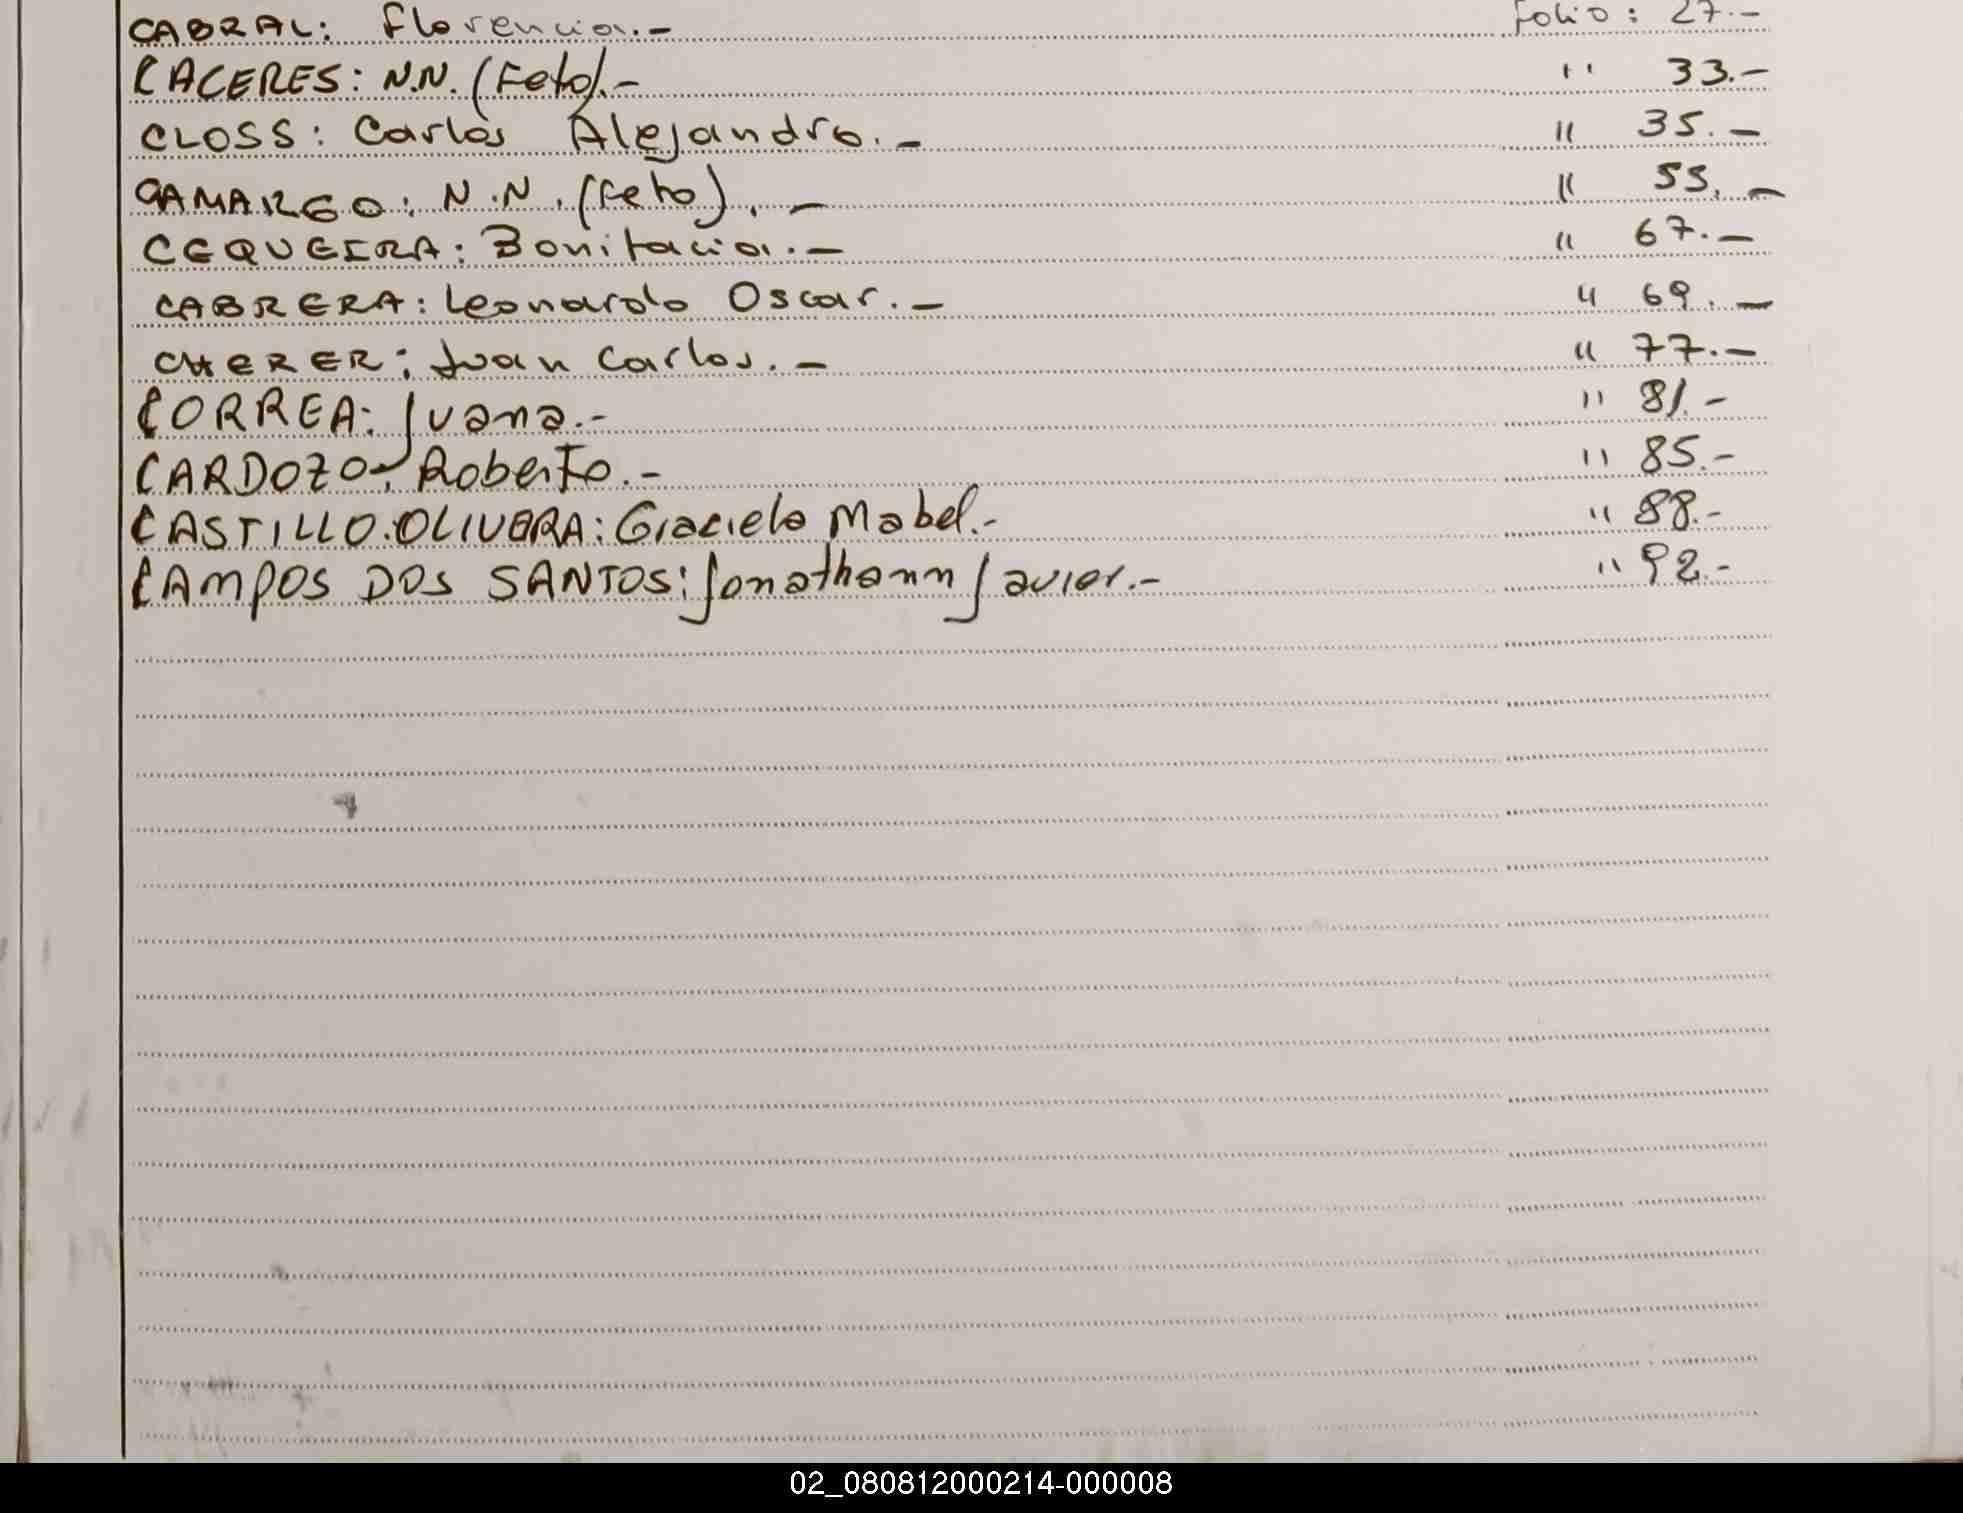 CABRAL: Florencia.- Folio: 27.-
CACERES: N.N. (Feto).- " 33.-
CLOSS: Carlos Alejandro.- " 35.-
CAMARGO: N.N. (Feto).- " 55.-
CEQUEIRA: Bonifacia.- " 67.-
CABRERA: Leonardo Oscar.- " 69.-
CHERER: Juan Carlos.- " 77.-
CORREA: Juana.- " 81.-
CARDOZO: Roberto.- " 85.-
CASTILLO.OLIVERA: Graciela Mabel.- " 88.-
CAMPOS DOS SANTOS: Jonathann Javier.- " 92.-
02_080812000214-000008